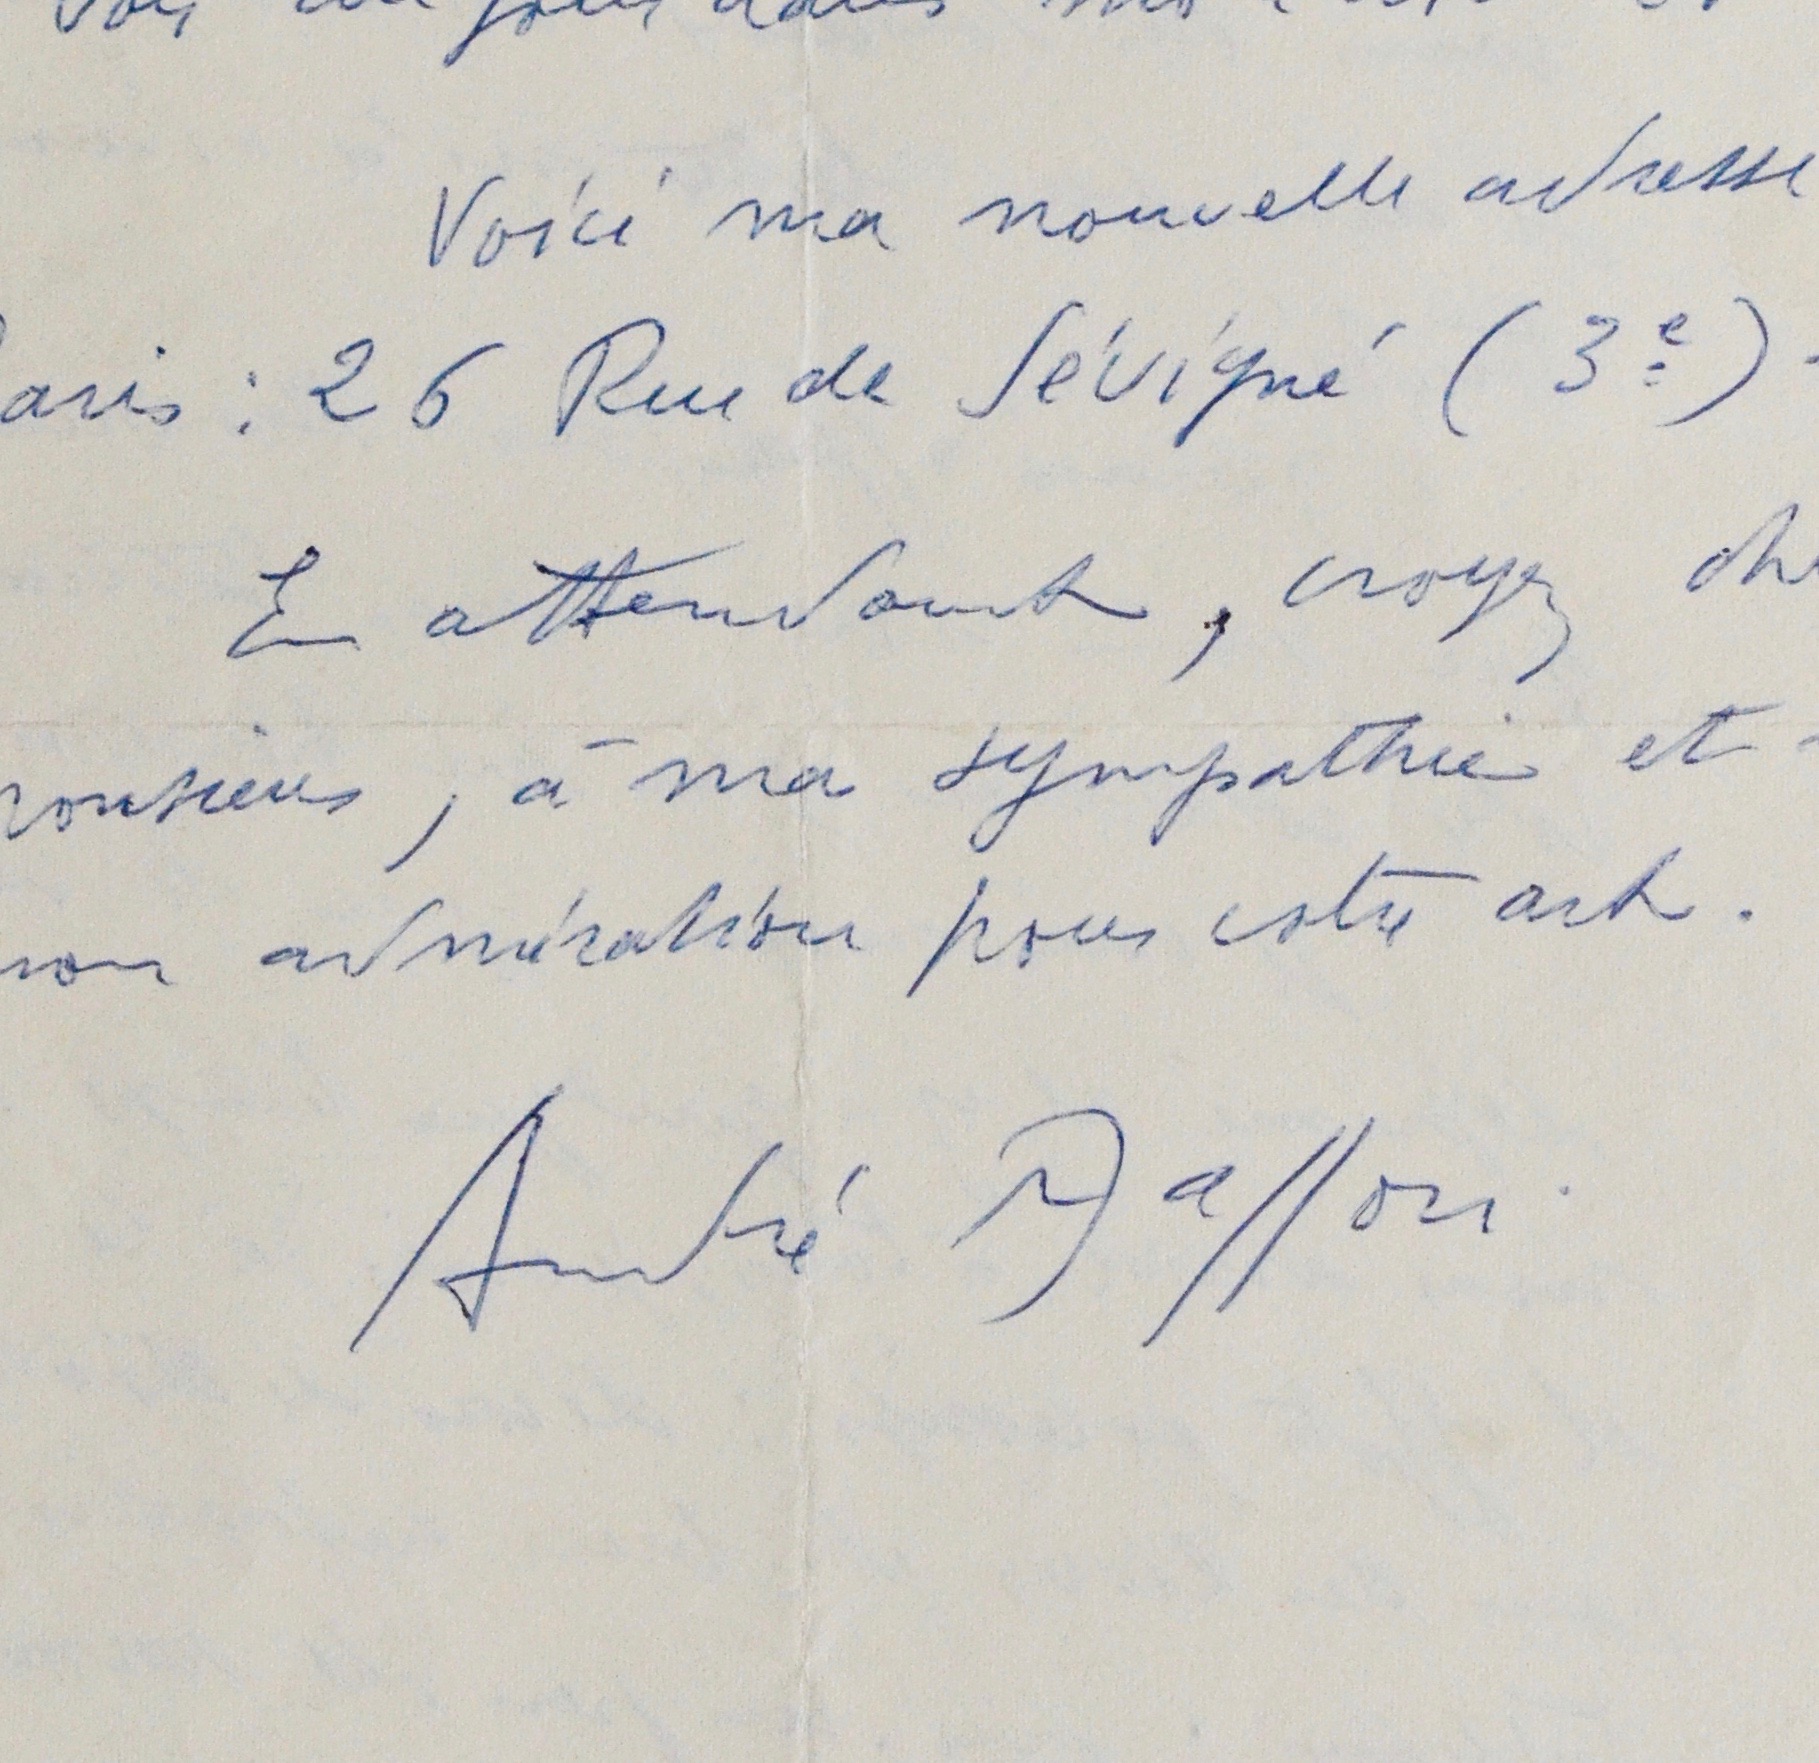 Voici ma nouvelle adresse
aris : 26 Rue de Sévigné (3e) -
En attendant, croyez che
monsieur, à ma sympathie et
mon admiration pour votre art.
André Masson.